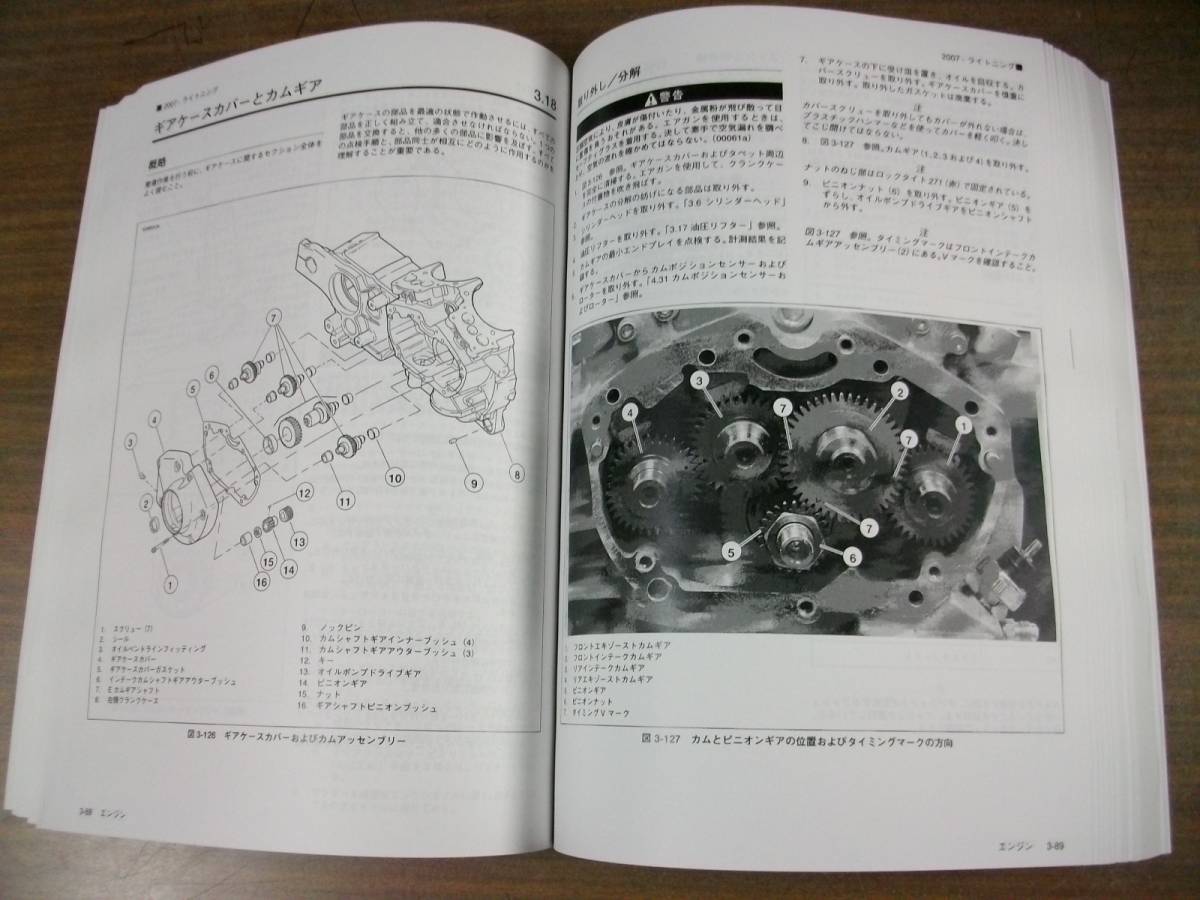 ■ 2007 - ライトニング
ギアケースカバーとカムギア
3.18
概略
整備作業を行う前に、ギアケースに関するセクション全体を
よく読むこと。
ギアケースの部品を最適の状態で作動させるには、すべての
部品を正しく組み立て、適合させなければならない。1つの
部品を交換すると、他の多くの部品に影響を及ぼす。すべて
の点検手順と、部品同士が相互にどのように作用するのかを
理解することが重要である。
7
6
5
4
3
2
1
12
11
10
9
8
13
14
15
16
1. スクリュー (7)
2. シール
3. オイルベントラインフィッティング
4. ギアケースカバー
5. ギアケースカバーガスケット
6. インテークカムシャフトギアアウターブッシュ
7. E カムギアシャフト
8. 右側クランクケース
9. ノックピン
10. カムシャフトギアインナーブッシュ (4)
11. カムシャフトギアアウターブッシュ (3)
12. キー
13. オイルポンプドライブギア
14. ピニオンギア
15. ナット
16. ギアシャフトピニオンブッシュ
図 3-126 ギアケースカバーおよびカムアッセンブリー
3-88 エンジン
2007 - ライトニング ■
取り外し／分解
警告
により、皮膚が傷付いたり、金属粉が飛び散って目
を負うおそれがある。エアガンを使用するときは、
を着用する。決して素手で空気漏れを調べ
の流れを確かめてはならない。(00061a)
図 3-126 参照。ギアケースカバーおよびタペット周辺
を完全に清掃する。エアガンを使用して、クランクケー
の付着物を吹き飛ばす。
ギアケースの分解の妨げになる部品は取り外す。
シリンダーヘッドを取り外す。「3.6 シリンダーヘッド」
参照。
油圧リフターを取り外す。「3.17 油圧リフター」参照。
カムギアの最小エンドプレイを点検する。計測結果を記
録する。
ギアケースカバーからカムポジションセンサーおよび
ローターを取り外す。「4.31 カムポジションセンサーお
よびローター」参照。
7. ギアケースの下に受け皿を置き、オイルを回収する。カ
バースクリューを取り外す。ギアケースカバーを慎重に
取り外す。取り外したガスケットは廃棄する。
注
カバースクリューを取り外してもカバーが外れない場合は、
プラスチックハンマーなどを使ってカバーを軽く叩く。決し
てこじ開けてはならない。
8. 図 3-127 参照。カムギア (1, 2, 3 および 4) を取り外す。
注
ナットのねじ部はロックタイト 271 (赤) で固定されている。
9. ピニオンナット (6) を取り外す。ピニオンギア (5) を
ずらし、オイルポンプドライブギアをピニオンシャフト
から外す。
注
図 3-127 参照。タイミングマークはフロントインテークカ
ムギアアッセンブリー (2) にある。V マークを確認すること。
3
7
2
4
7
1
7
5
6
1 フロントエキゾーストカムギア
2 フロントインテークカムギア
3 リアインテークカムギア
4 リアエキゾーストカムギア
5 ピニオンギア
6 ピニオンナット
7 タイミング V マーク
図 3-127 カムとピニオンギアの位置およびタイミングマークの方向
エンジン 3-89